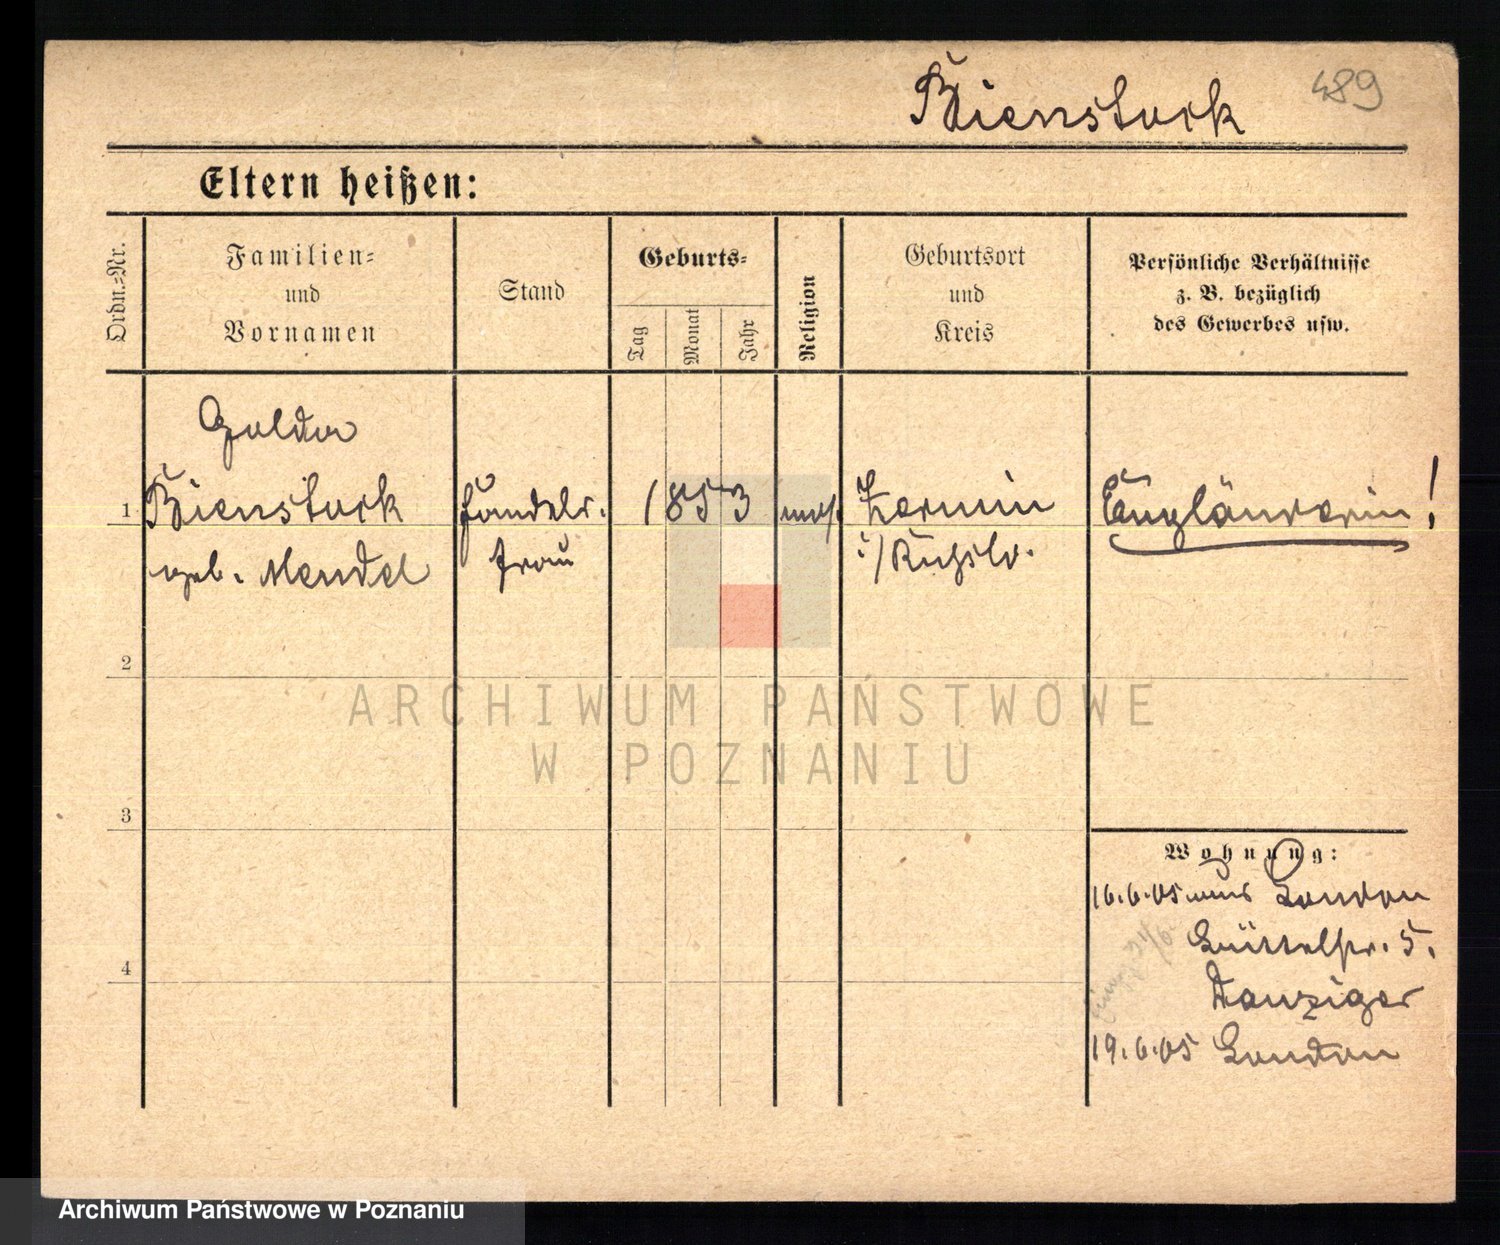 Bienstock 489
Eltern heißen:
Ordn.-Nr.
Familien-
und
Vornamen
Stand
Geburts-
Tag
Monat
Jahr
Religion
Geburtsort
und
Kreis
Persönliche Verhältnisse
z. B. bezüglich
des Gewerbes usw.
Golda
1 Bienstock Handels- 1853 mos. Engländerin!
geb. Mendel frau i/Rußld.
2
ARCHIWUM PAŃSTWOWE
W POZNANIU
3
Wohnung:
16.6.05 aus London
5.
4
Danziger
19.6.05 London
Archiwum Państwowe w Poznaniu